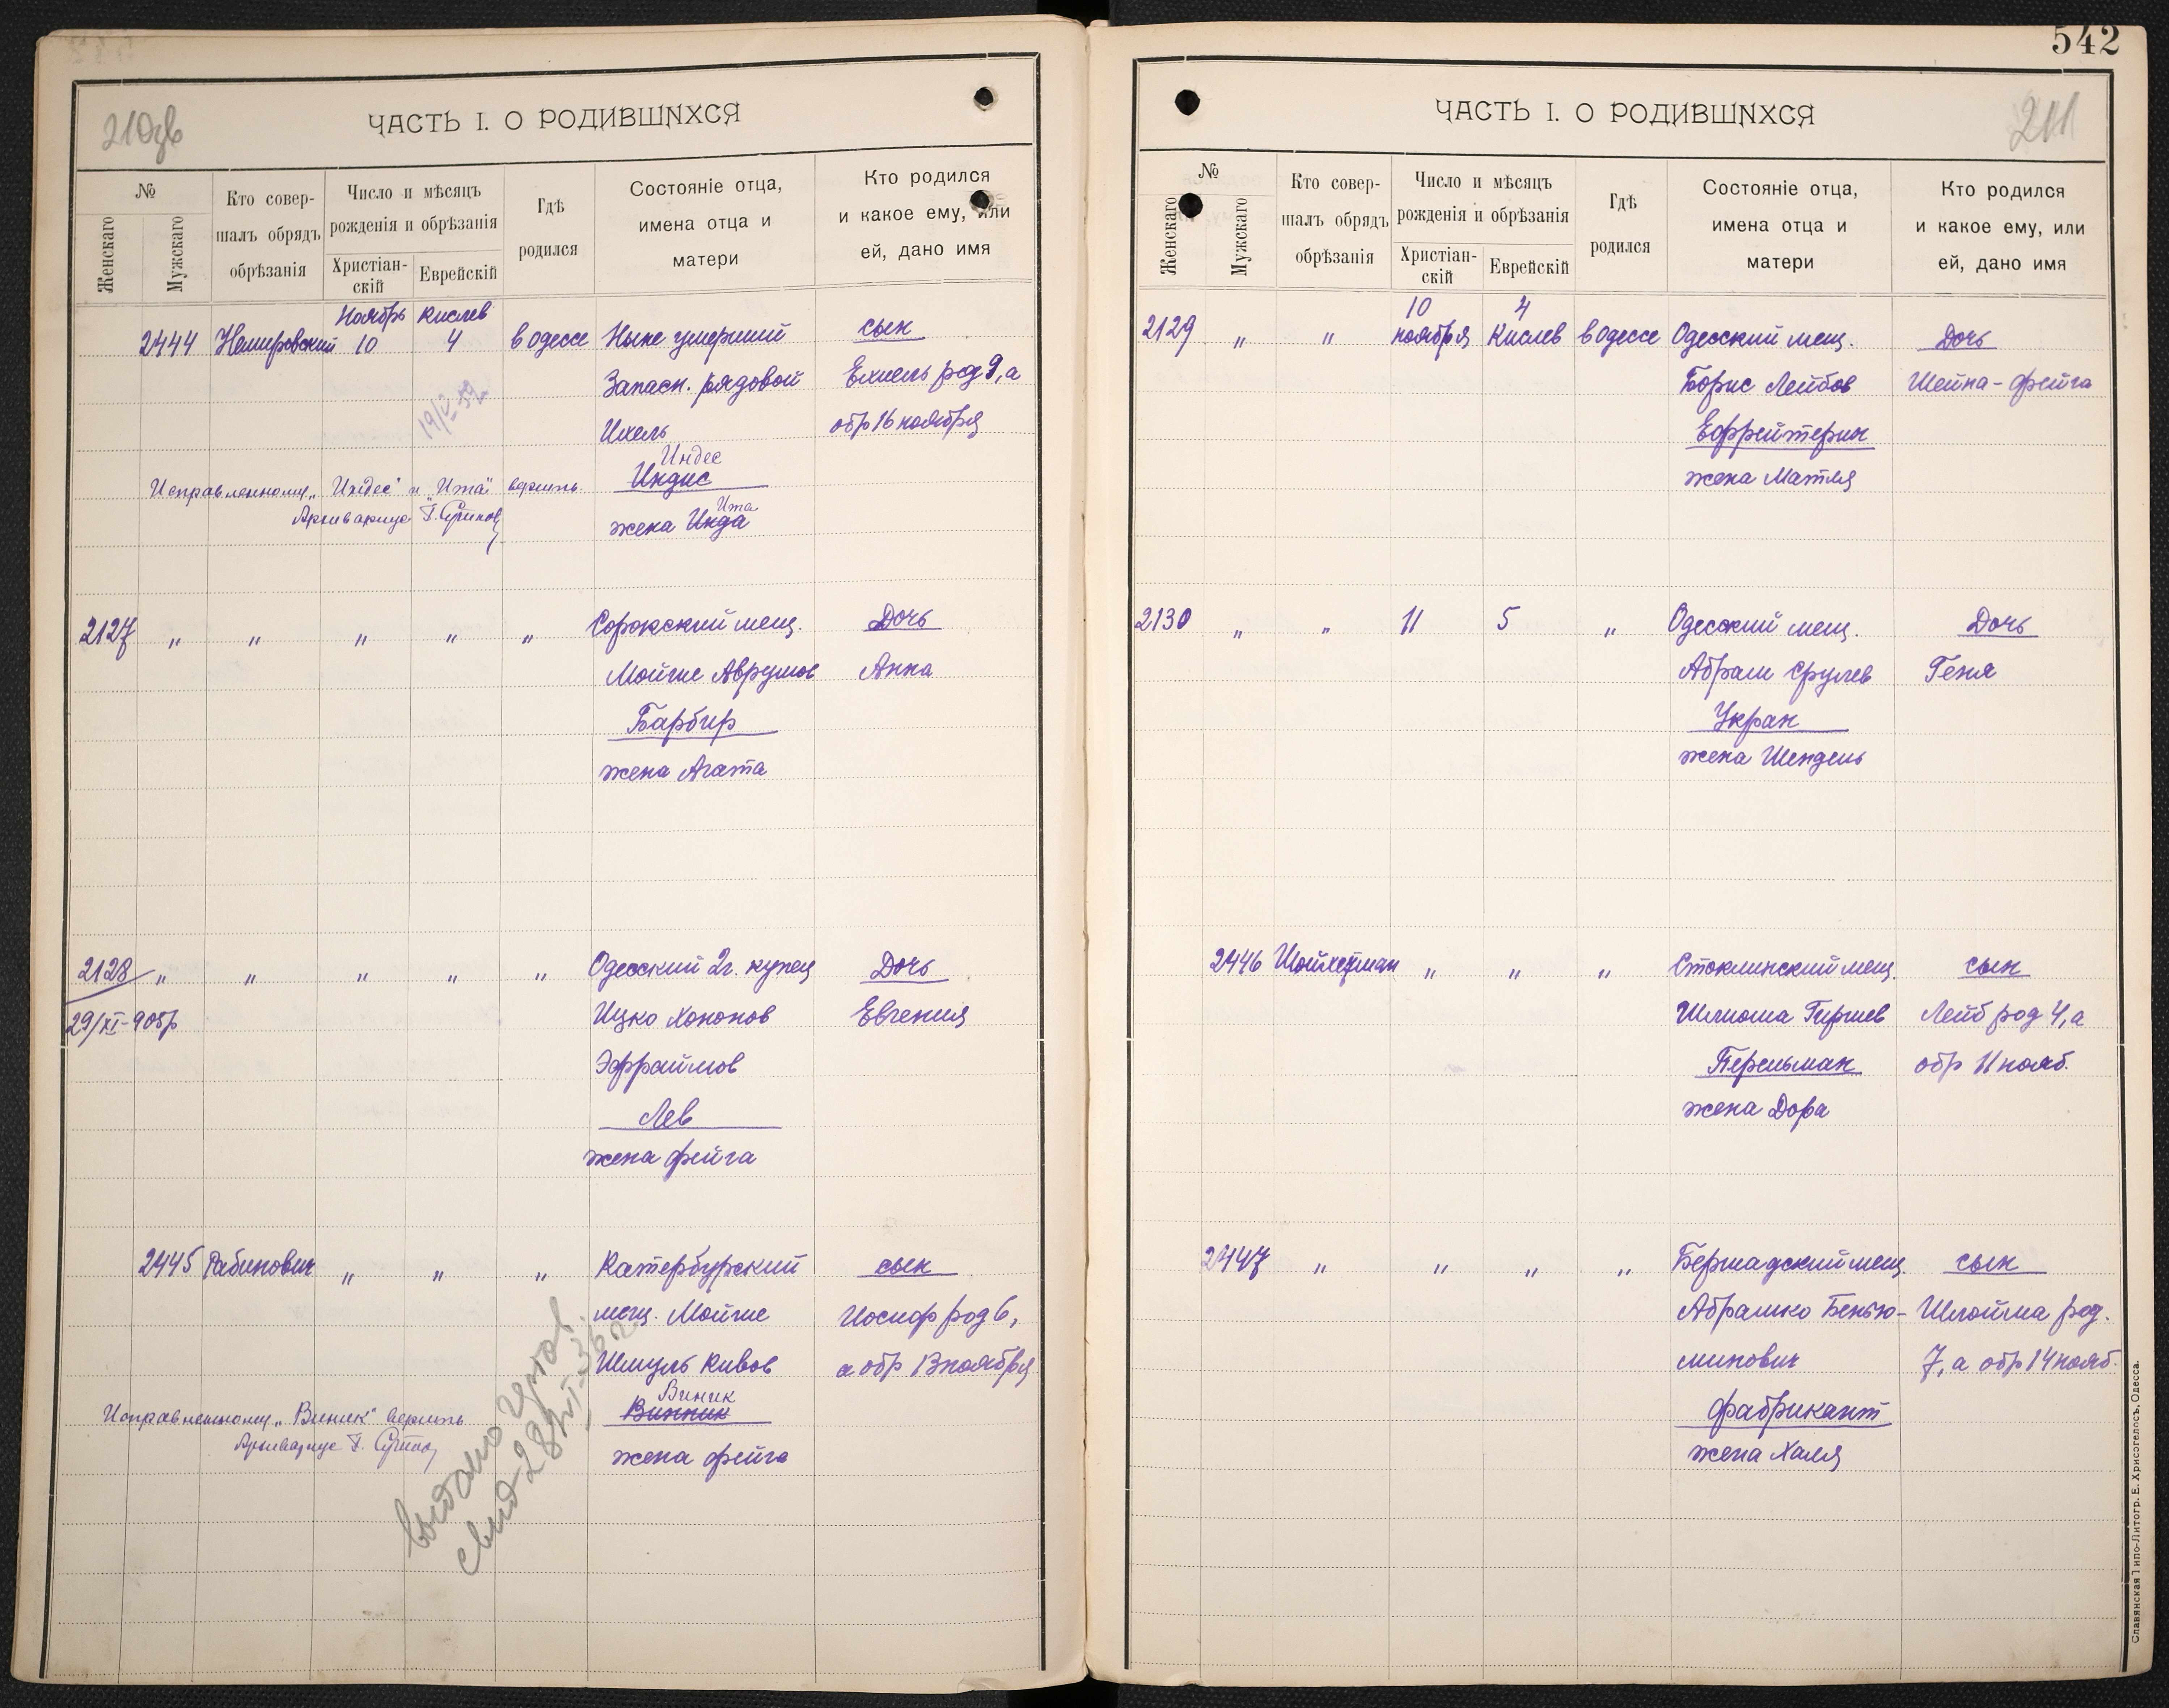 210 зв
ЧАСТЬ I. О РОДИВШИХСЯ
№
Женскаго
Мужскаго
Кто совер-
шалъ обрядъ
обрѣзанія
Число и мѣсяцъ
рожденія и обрѣзанія
Христіан-
скій
Еврейскій
Гдѣ
родился
Состояніе отца,
имена отца и
матери
Кто родился
и какое ему, или
ей, дано имя
Ноябрь Кислев
2444 Немировский 10 4 в Одессе Ныне умерший сын
Запасн. рядовой Ехиель род 9, а
Ихель обр 16 ноября
19/V-59
Индес
Индис
Исправленному „Индес" и „Ита" верить
Ита
Архивариус
жена Инда
2127 " " " " " Сорокский мещ. Дочь
Мойше Аврумов Анна
Барбир
жена Агата
2128 " " " " " Одесский 2г. купец Дочь
29/XI-905р Ицко Хононов Евгения
Эфраимов
Лев
жена Фейга
2445 Рабинович " " " Катербурский сын
мещ. Мойше Иосиф род 6,
Шмуль Кивов а обр 13 ноября
Виник
Винник
Исправленному „Виник" верить
Архивариус
жена Фейга
выдано
свид
542
211
ЧАСТЬ I. О РОДИВШИХСЯ
№
Женскаго
Мужскаго
Кто совер-
шалъ обрядъ
обрѣзанія
Число и мѣсяцъ
рожденія и обрѣзанія
Христіан-
скій
Еврейскій
Гдѣ
родился
Состояніе отца,
имена отца и
матери
Кто родился
и какое ему, или
ей, дано имя
10 4
2129 " " ноября Кислев в Одессе Одесский мещ. Дочь
Борис Лейбов Шейна-Фейга
Ефрейтерин
жена Матля
2130 " " 11 5 " Одесский мещ. Дочь
Абрам Срулев Геня
Укран
жена Шендель
2446 Шойхетман " " " Стоклинский мещ. сын
Шлиома Гиршев Лейб род 4, а
Перельман обр 11 нояб.
жена Дора
2447 " " " " Бершадский мещ. сын
Абрашко Бенью- Шлойма род.
минович 7, а обр 14 нояб.
Фабрикант
жена Халя
Славянская Типо-Литогр. Е. Хрисогелосъ, Одесса.